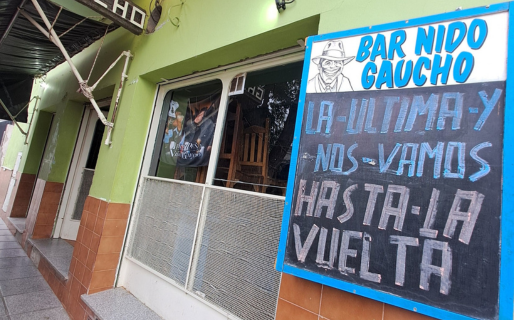 CHO
BAR NIDO
GAUCHO
LA-ULTIMA-Y
NOS-VAMOS
HASTA-LA
VUELTA